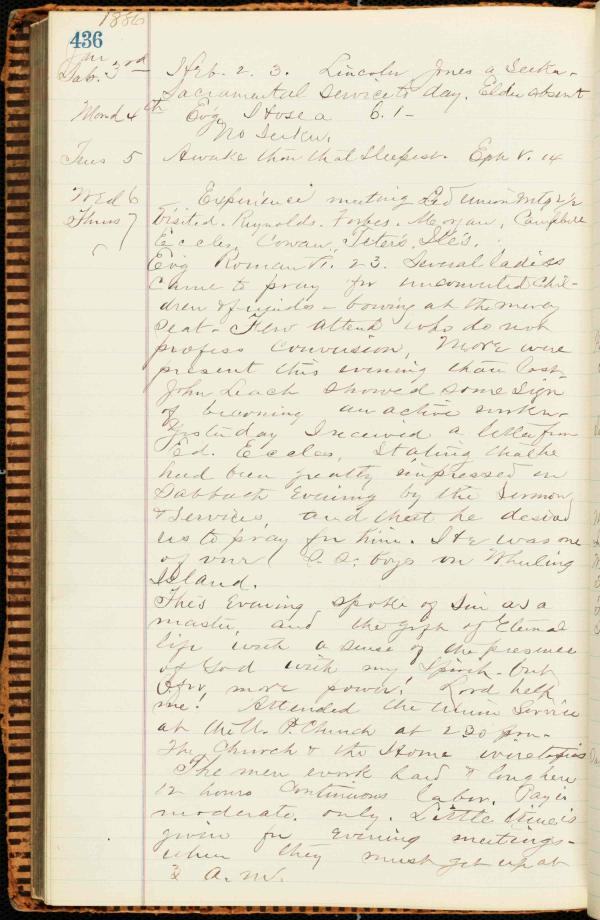 1886
436
Jan
Sab. 3rd Heb. 2. 3. Lincoln Jones a Seeker.
Sacramental service to day. Elder absent
Mond 4th Ev'g Hosea 6. 1 -
No Seeker.
Tues 5 Awake thou that sleepest. Eph V. 14
Wed 6 Experience meeting Led Union Mtg 2 1/2
Thurs 7 Visited. Reynolds. Forbes. Morgan, Campbell
Eccles, Cowan, Teters,
Ev'g Roman VI. 23. Several ladies
came to pray for unconverted chil-
dren & friends - bowing at the mercy
seat - Few attend who do not
profess conversion. More were
present this evening than last.
John Leach showed some sign
of becoming an active worker.
Yesterday I received a letter from
Ed. Eccles, stating that he
had been greatly impressed on
Sabbath Evening by the Sermon
& Services, and that he desired
us to pray for him. He was one
of our S. S. boys on Wheeling
Island.
This Evening, spoke of Sin as a
master, and the gift of Eternal
life with a sense of the presence
of God with my Spirit - but
O for more power! Lord help
me! Attended the Union Service
at the U. P. Church at 2 30 pm.
The Church & the Home were topics
The men work hard & long here
12 hours Continuous labor. Pay is
moderate only. Little time is
given for evening meetings -
when they must get up at
3 A. M.